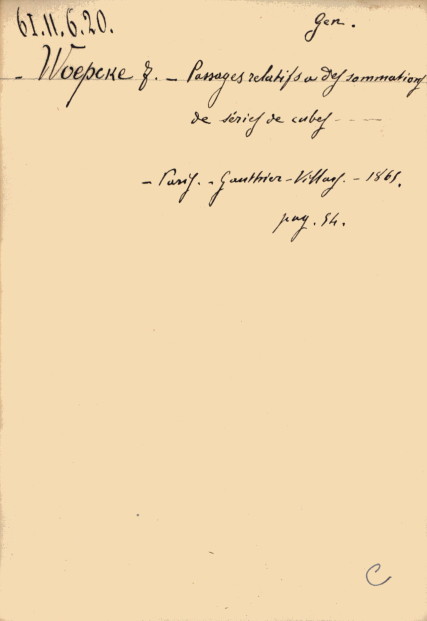 61.11.6.20.
Gen.
- Woepcke F. - Passages relatifs a des sommations
de séries de cubes - - -
- Paris. - Gauthier-Villars. - 1865.
pag. 54.
C